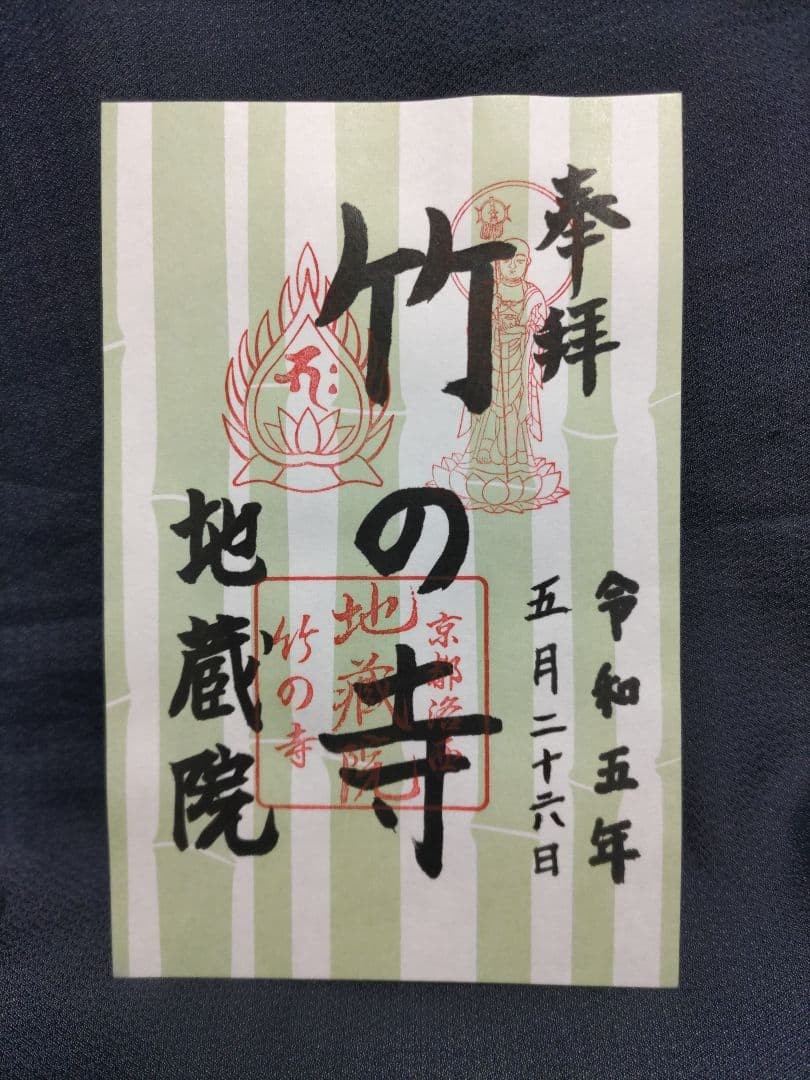 奉拝
令和五年
五月二十六日
竹の寺
地蔵院
京都洛西
地蔵院
竹の寺